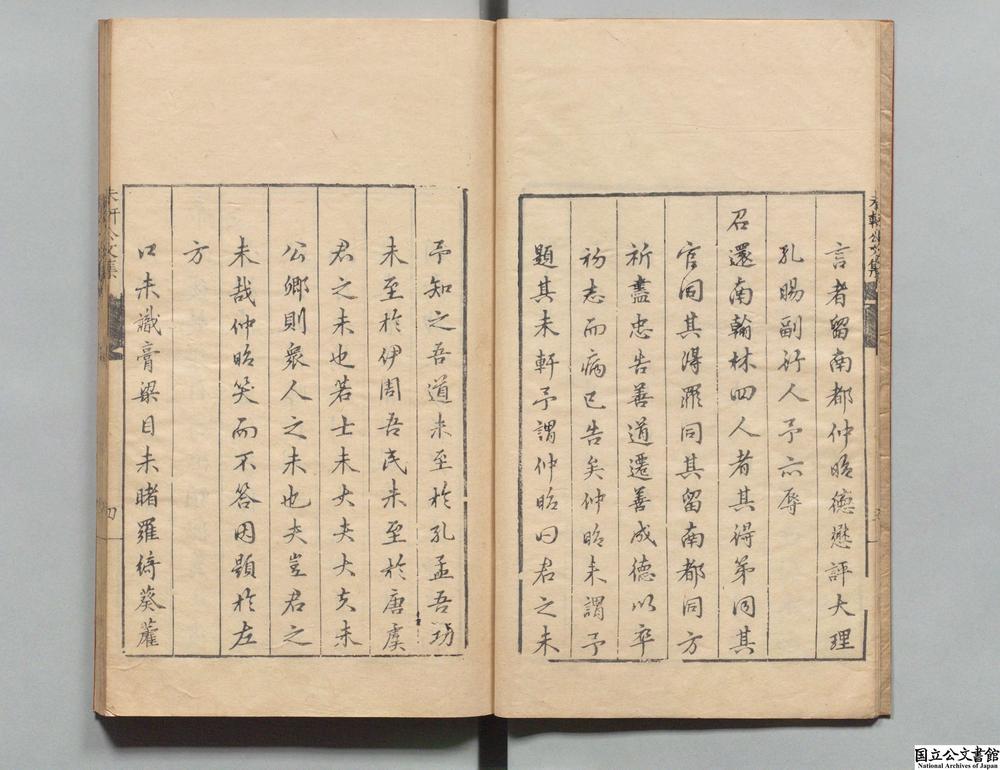 言者留南都仲昭德懋評大理
孔暘副行人予亦辱
召還南翰林四人者其得第同其
官同其得罪同其留南都同方
祈盡忠告善道遷善成德以卒
初志而病已告矣仲昭来謂予
題其未軒予謂仲昭曰君之未
予知之吾道未至於孔孟吾功
未至於伊周吾民未至於唐虞
君之未也若士未大夫大夫未
公卿則衆人之未也夫豈君之
未哉仲昭笑而不答因題於左
方
口未識膏粱目未睹羅綺葵藿
未軒公文集
四
国立公文書館
National Archives of Japan